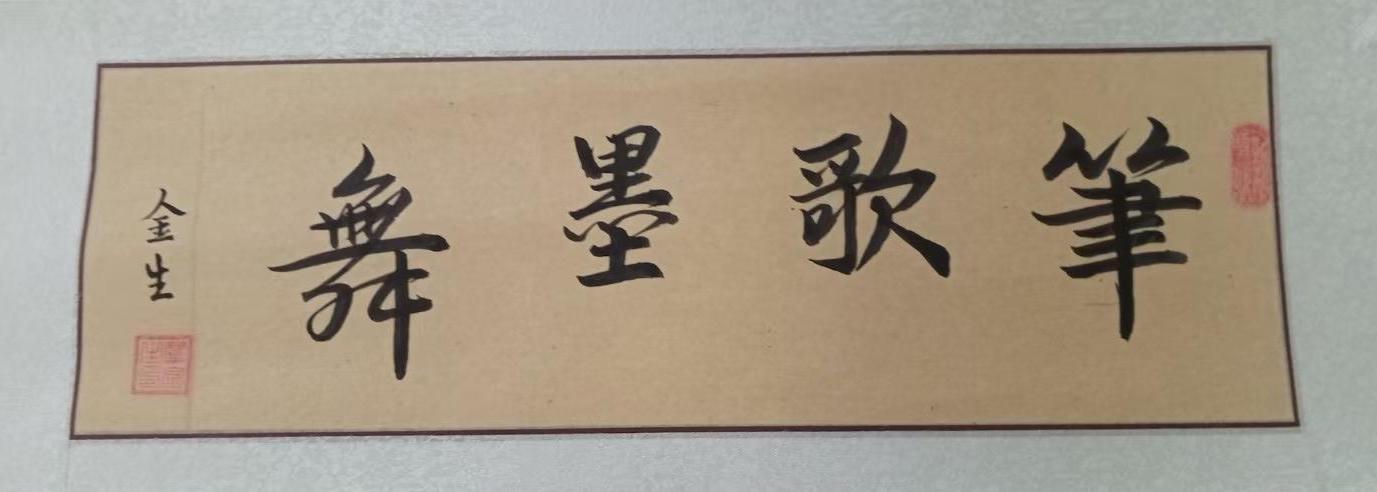 筆歌墨舞
金生